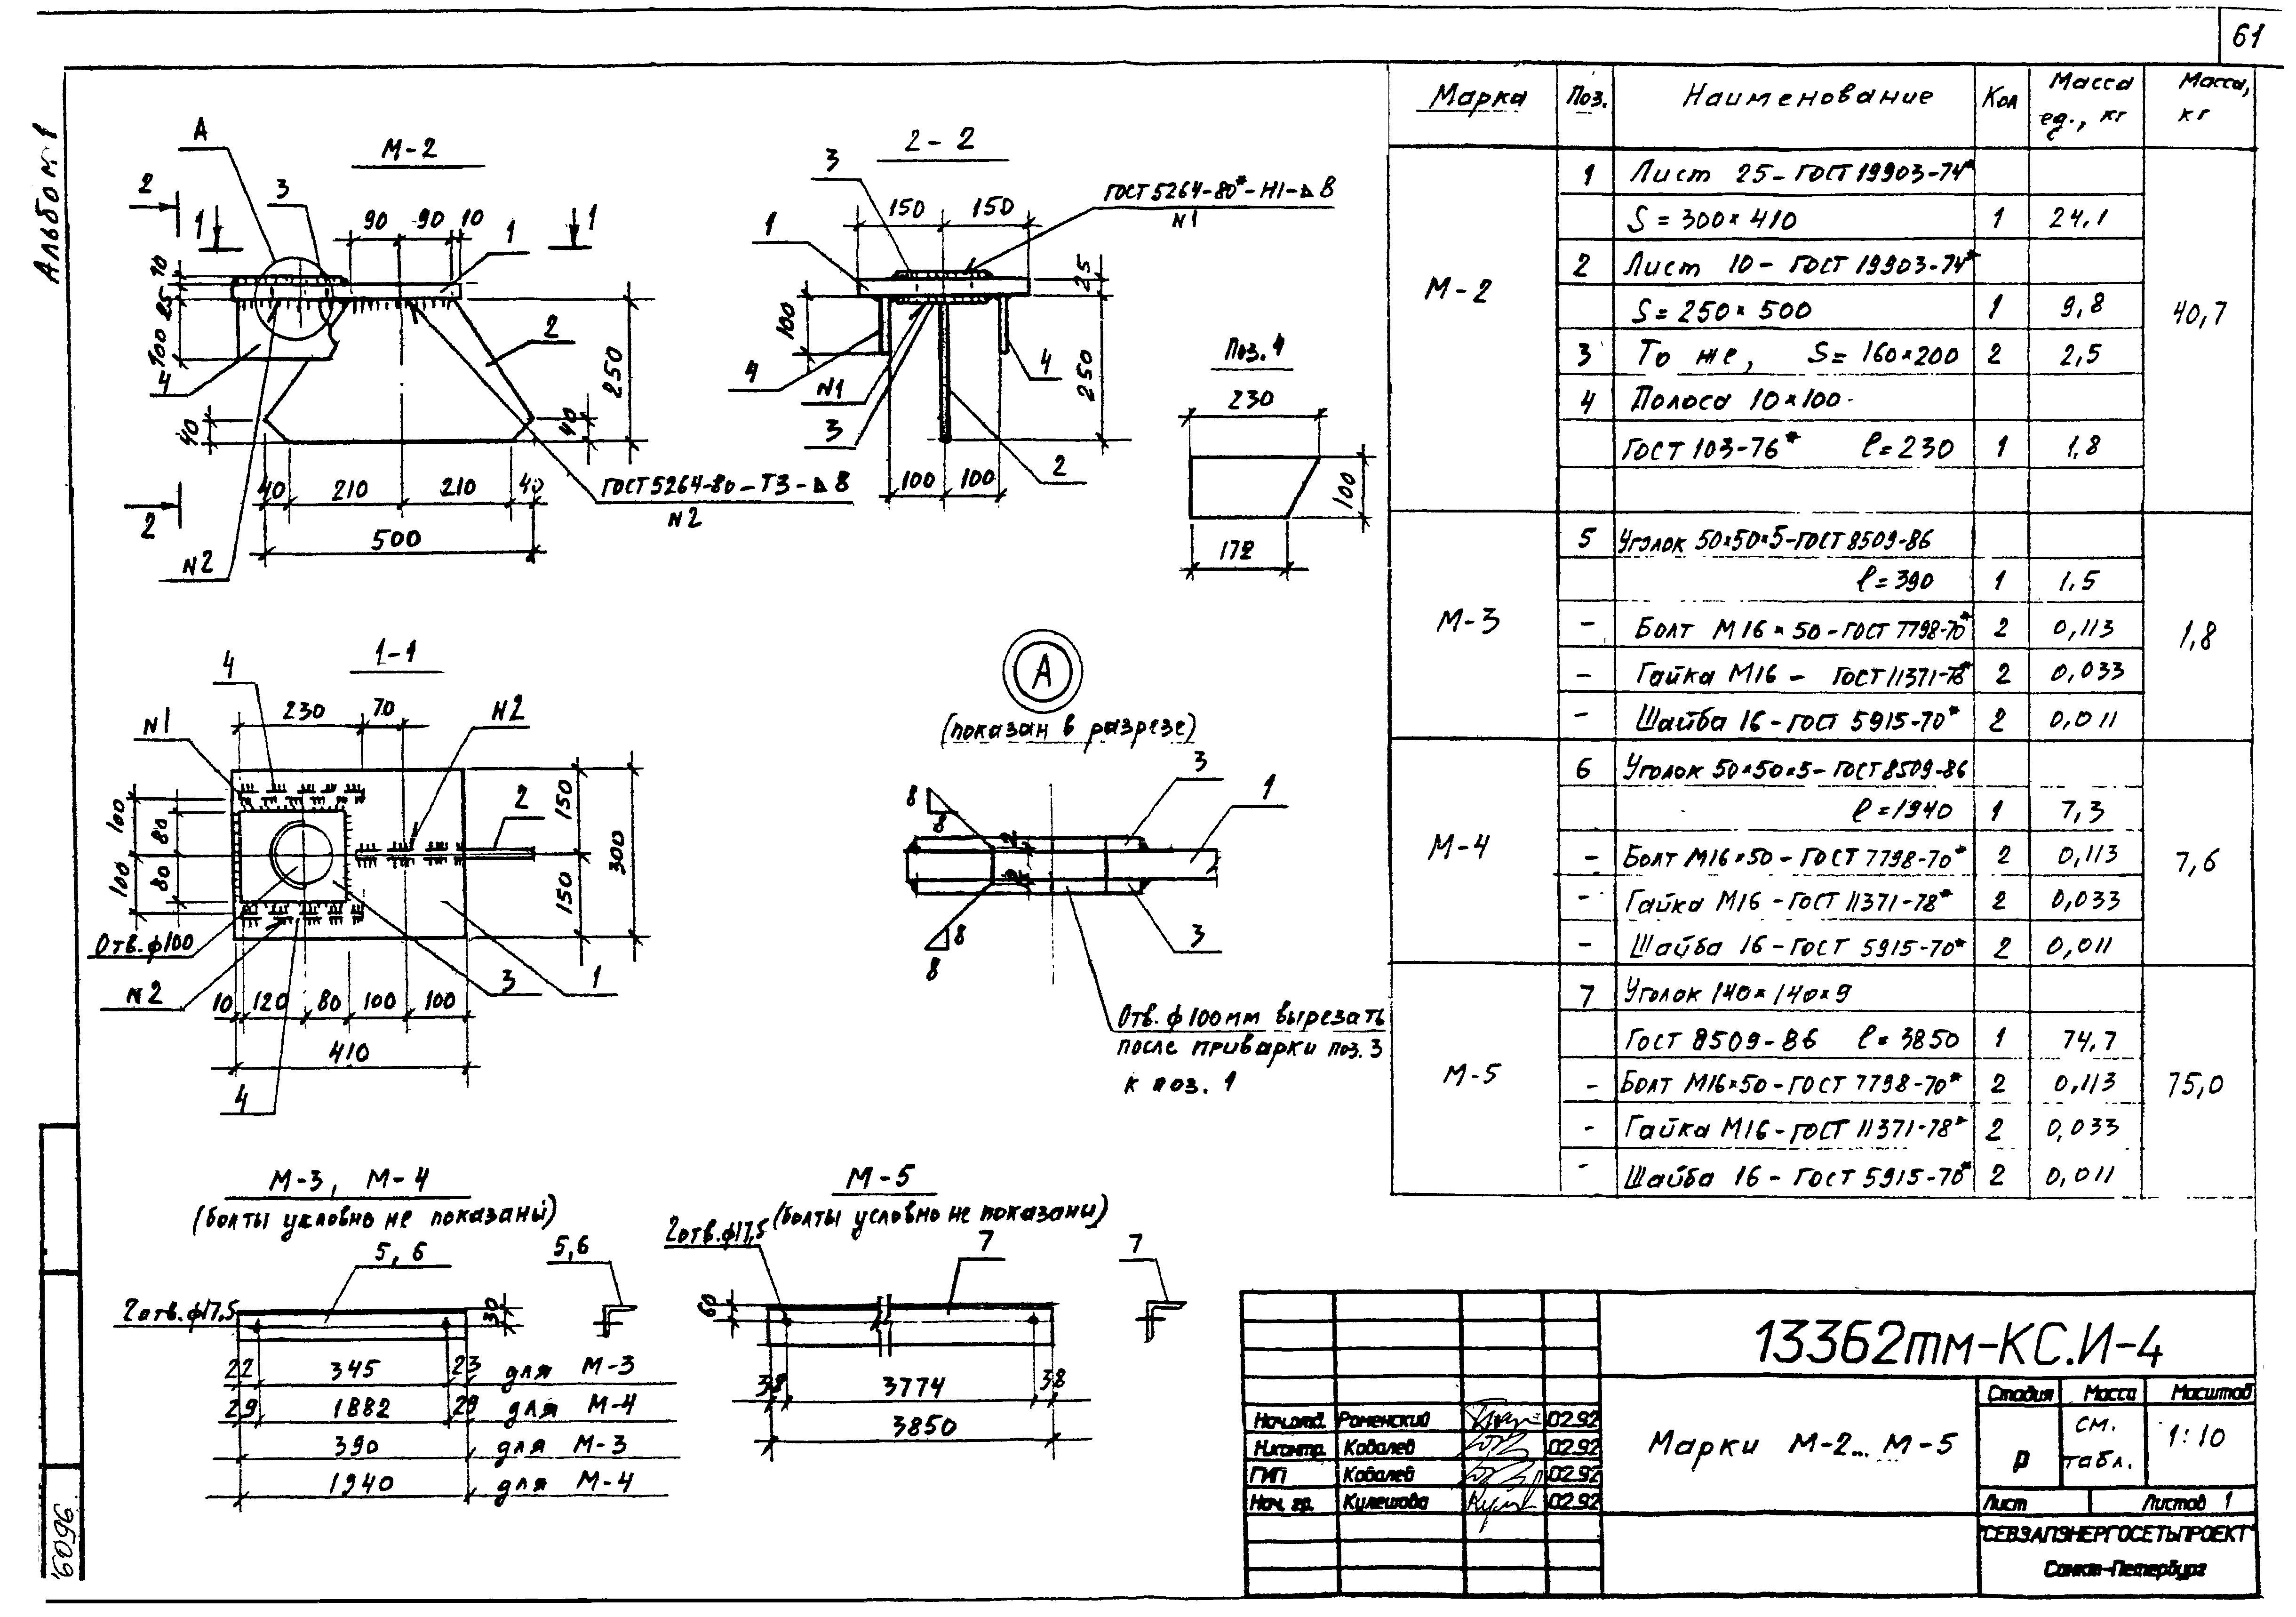 61
Альбом 1
М-2
А
2
3
1
90
90
10
1
1
10
25
100
4
2
250
40
40
40
210
210
40
500
2
N2
ГОСТ 5264-80-Т3-⊿8
N2
2-2
3
ГОСТ 5264-80*-Н1-⊿8
N1
150
150
1
25
100
4
N1
3
4
250
2
100
100
Поз. 4
230
100
172
1-1
4
N1
230
70
N2
2
100
80
100
80
150
300
150
Отв. ф100
N2
3
1
10
120
80
100
100
410
4
А
(показан в разрезе)
3
1
8
8
2
2
8
8
3
Отв. ф100мм вырезать
после приварки поз. 3
к поз. 1
М-3, М-4
(болты условно не показаны)
5, 6
5,6
2отв. ф17,5
30
22
345
23
для М-3
29
1882
29
для М-4
390
для М-3
1940
для М-4
М-5
(болты условно не показаны)
2отв. ф17,5
7
7
60
38
3774
38
3850
Марка
Поз.
Наименование
Кол
Масса
ед., кг
Масса,
кг
М-2
1 Лист 25-ГОСТ 19903-74*
S=300×410 1 24,1
2 Лист 10-ГОСТ 19903-74*
S=250×500 1 9,8
40,7
3 То же, S=160×200 2 2,5
4 Полоса 10×100-
ГОСТ 103-76* ℓ=230 1 1,8
М-3
5 Уголок 50×50×5-ГОСТ 8509-86
ℓ=390 1 1,5
- Болт М16×50-ГОСТ 7798-70* 2 0,113
1,8
- Гайка М16-ГОСТ 11371-78* 2 0,033
- Шайба 16-ГОСТ 5915-70* 2 0,011
М-4
6 Уголок 50×50×5-ГОСТ 8509-86
ℓ=1940 1 7,3
- Болт М16×50-ГОСТ 7798-70* 2 0,113
7,6
- Гайка М16-ГОСТ 11371-78* 2 0,033
- Шайба 16-ГОСТ 5915-70* 2 0,011
М-5
7 Уголок 140×140×9
ГОСТ 8509-86 ℓ=3850 1 74,7
- Болт М16×50-ГОСТ 7798-70* 2 0,113
75,0
- Гайка М16-ГОСТ 11371-78* 2 0,033
- Шайба 16-ГОСТ 5915-70* 2 0,011
13362тм-КС.И-4
Марки М-2... М-5
Стадия Масса Масштаб
Р см. табл. 1:10
Лист Листов 1
"СЕВЗАПЭНЕРГОСЕТЬПРОЕКТ"
Санкт-Петербург
Нач.отд. Роменский 02.92
Н.контр. Ковалев 02.92
ГИП Ковалев 02.92
Нач. гр. Кулешова 02.92
16096